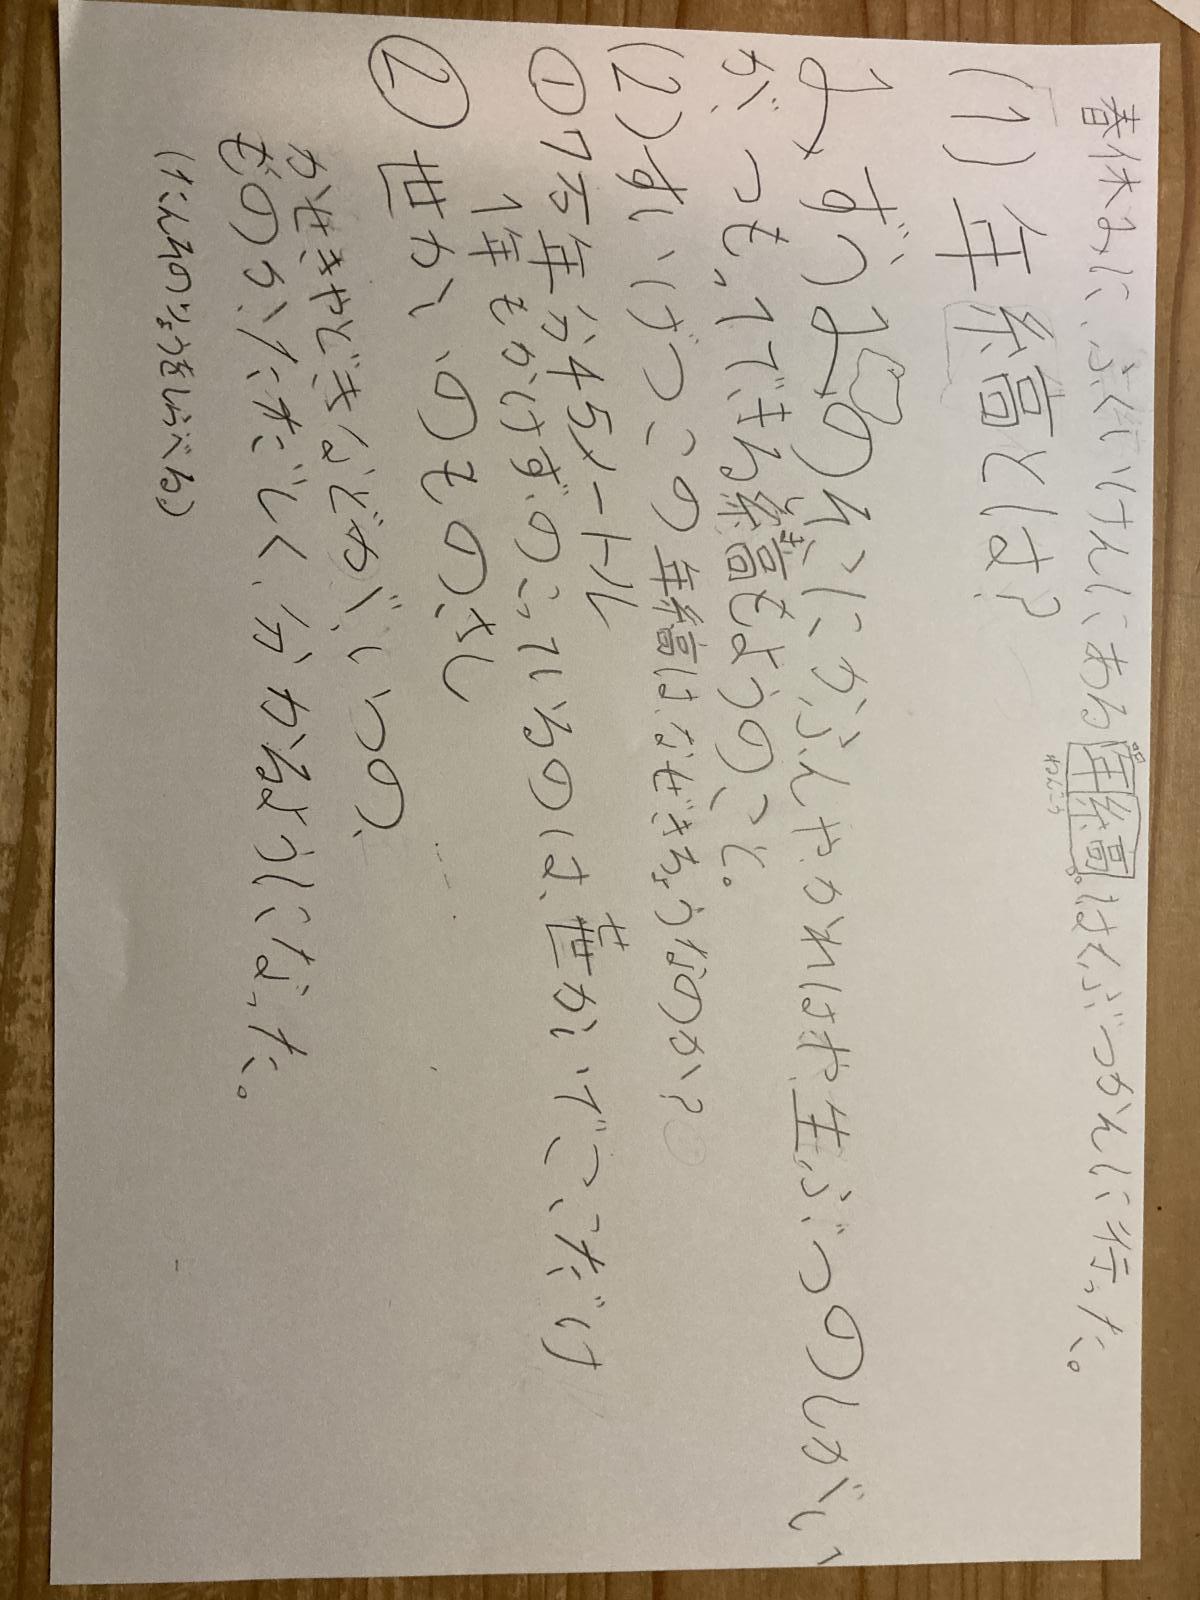 春休みに、ふくいけんにある年縞はくぶつかんに行った。
ねんこう
(1)年縞とは?
みずうみのそこにかふんやかれはや生ぶつのしがい
が、つもってできる縞もようのこと。
しま
(2)すいげつこの年縞はなぜきちょうなのか?
①7万年分45メートル
1年もかけずのこっているのは、世かいでここだけ
せ
②世かいのものさし
かせきやどきなどが、いつの、
ものかただしく、分かるようになった。
(たんそのりょうをしらべる)